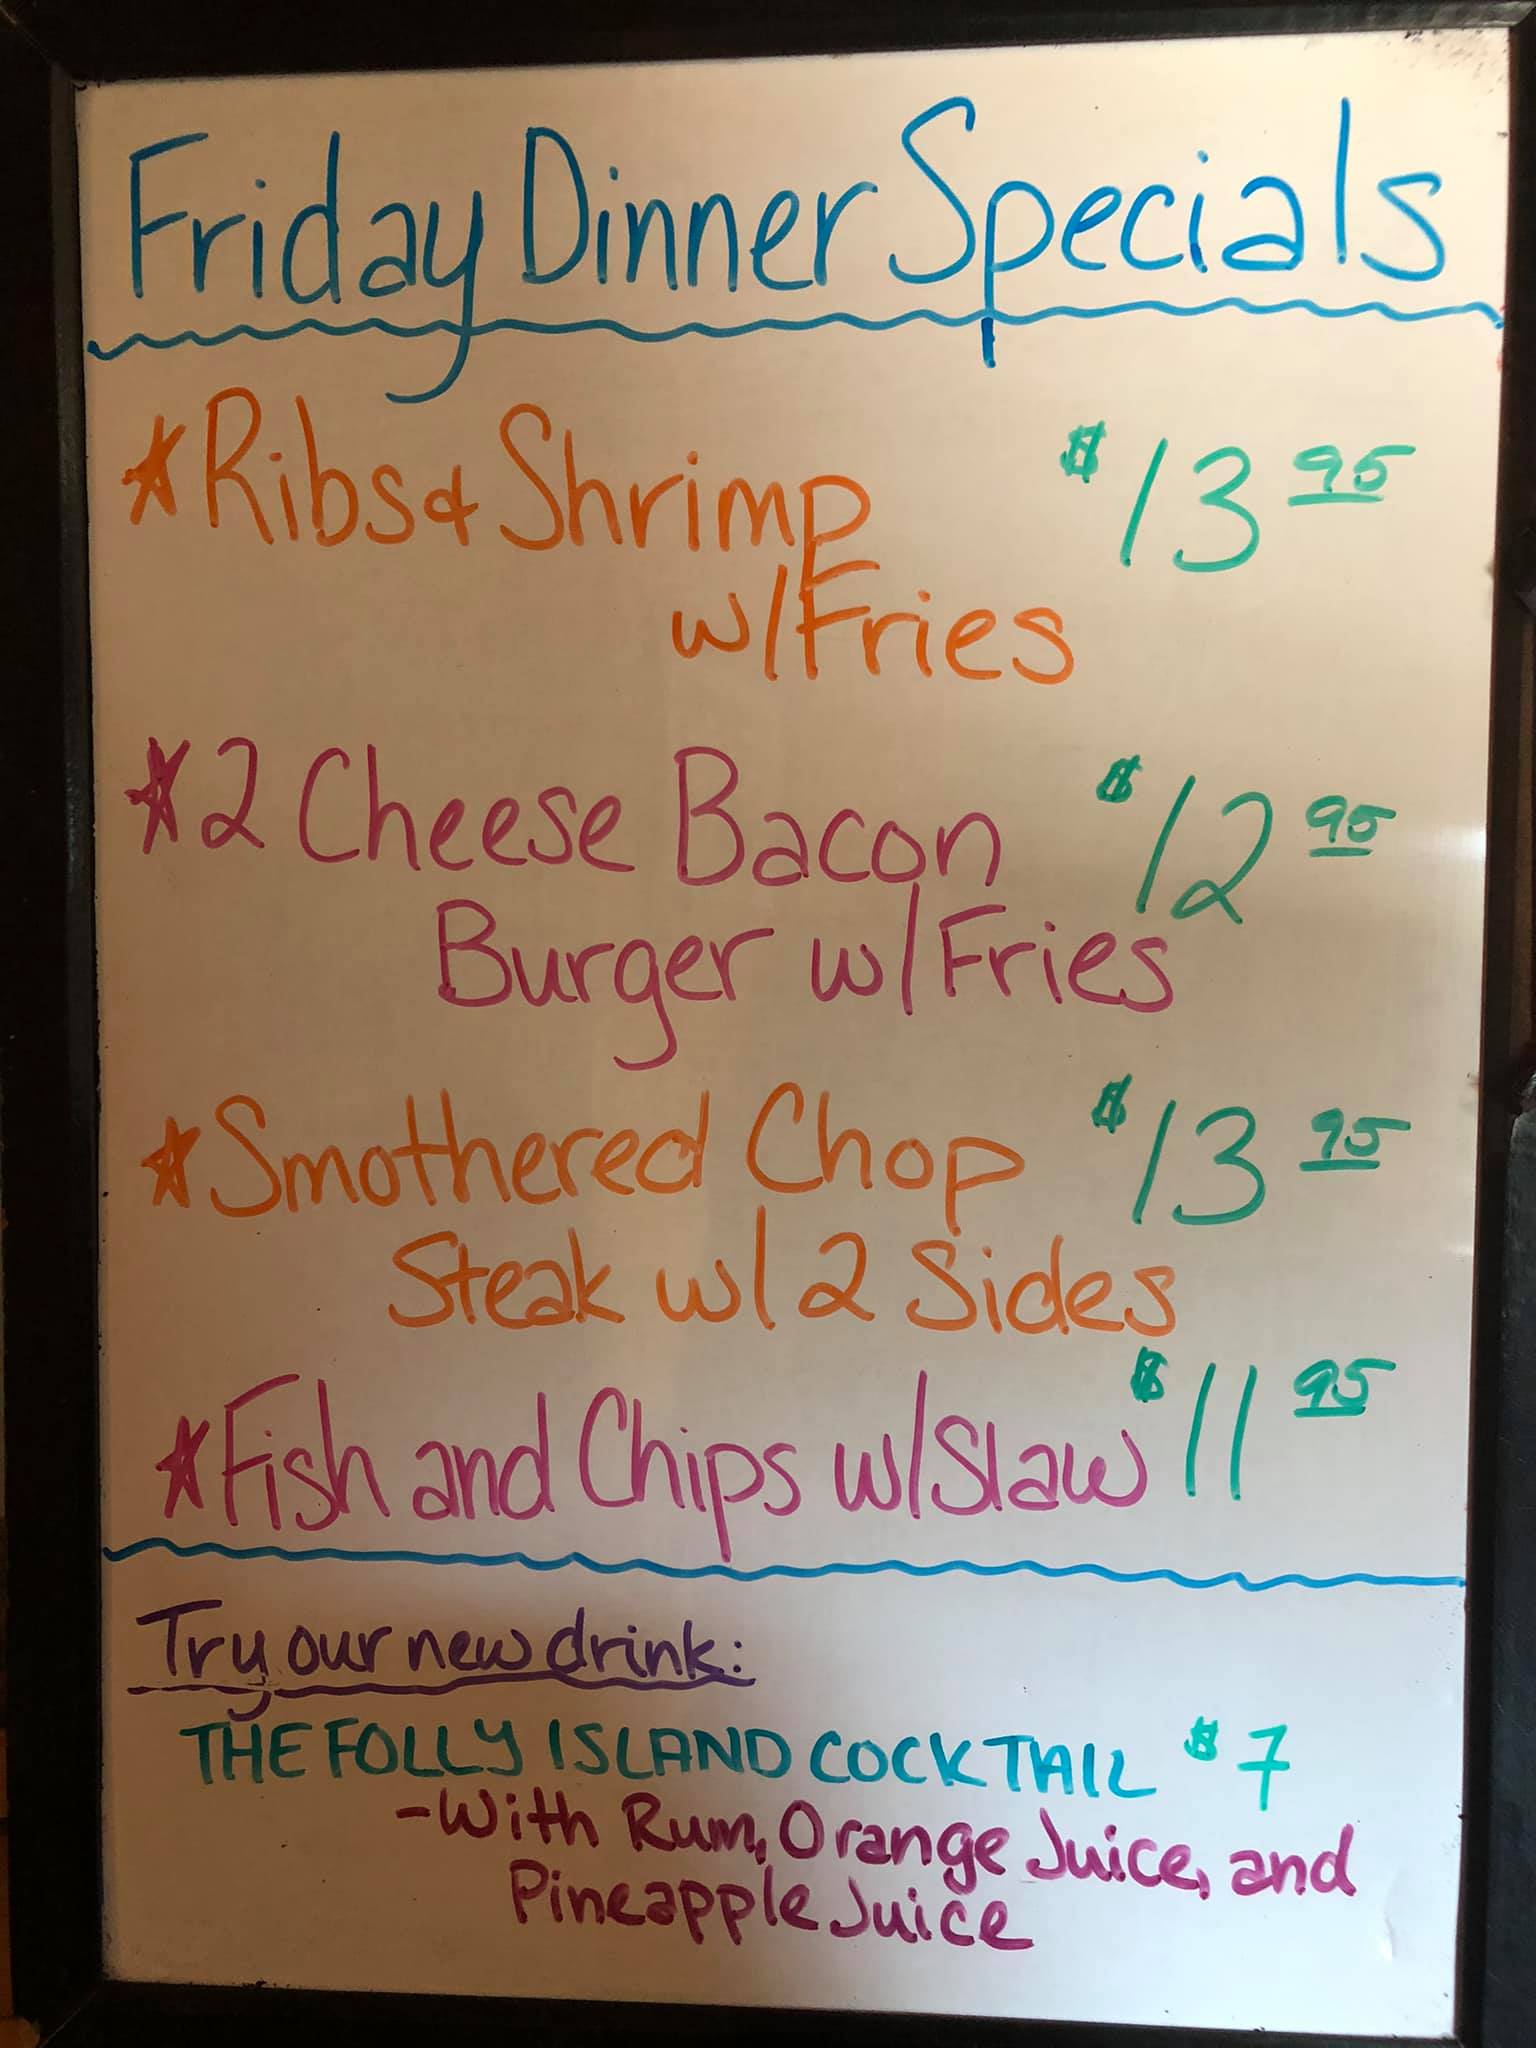 Friday Dinner Specials
*Ribs & Shrimp $13 95
w/Fries
*2 Cheese Bacon $12 95
Burger w/Fries
*Smothered Chop $13 95
Steak w/ 2 Sides
*Fish and Chips w/Slaw $11 95
Try our new drink:
THE FOLLY ISLAND COCKTAIL $7
-With Rum, Orange Juice, and
Pineapple Juice